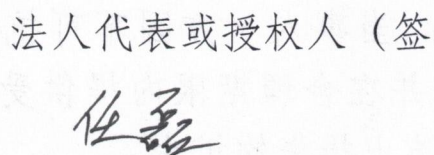 法人代表或授权人（签
任磊